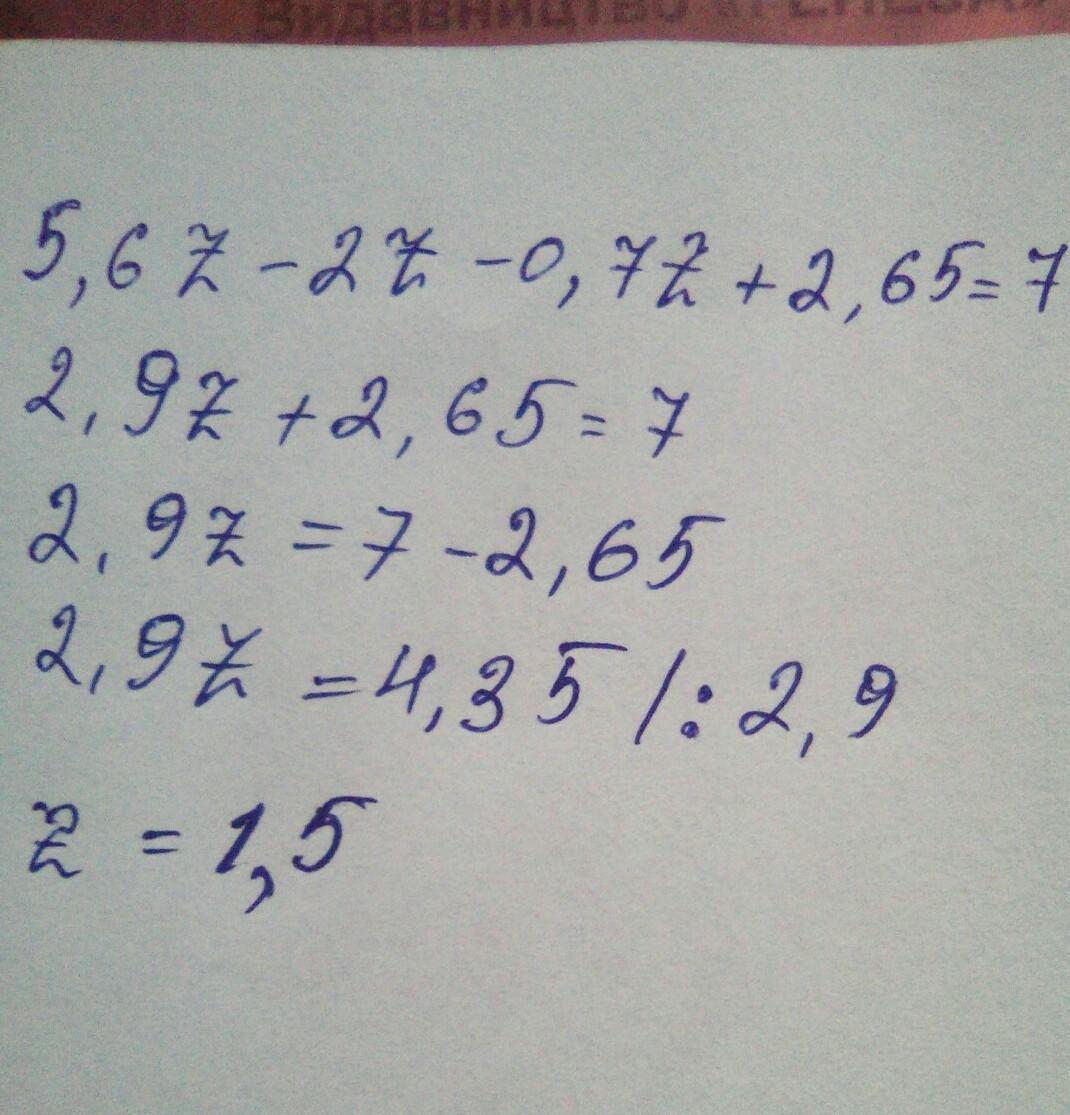 Видавництво
5,6z - 2z - 0,7z + 2,65 = 7
2,9z + 2,65 = 7
2,9z = 7 - 2,65
2,9z = 4,35 /: 2,9
z = 1,5